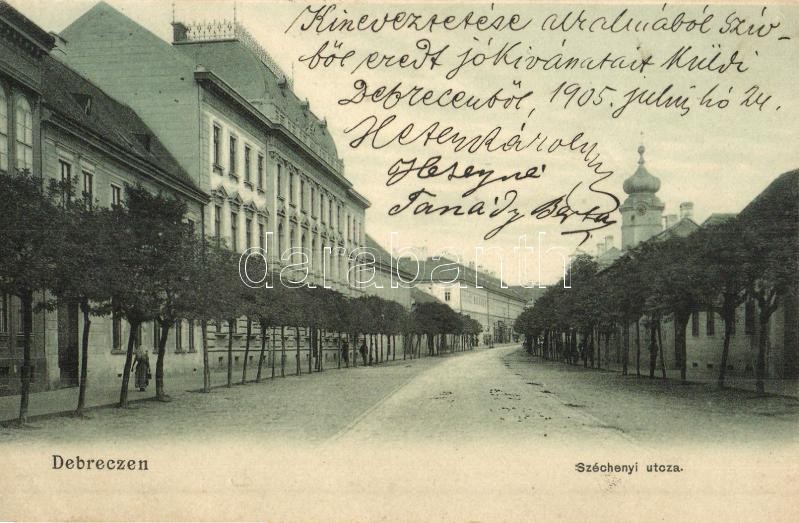 Kineveztetése alkalmából szív-
ből eredt jókivánatait küldi
Debrecenből, 1905. julius hó 24.
Károly
né
Tanády Berta
darabanth
Debreczen
Széchenyi utcza.